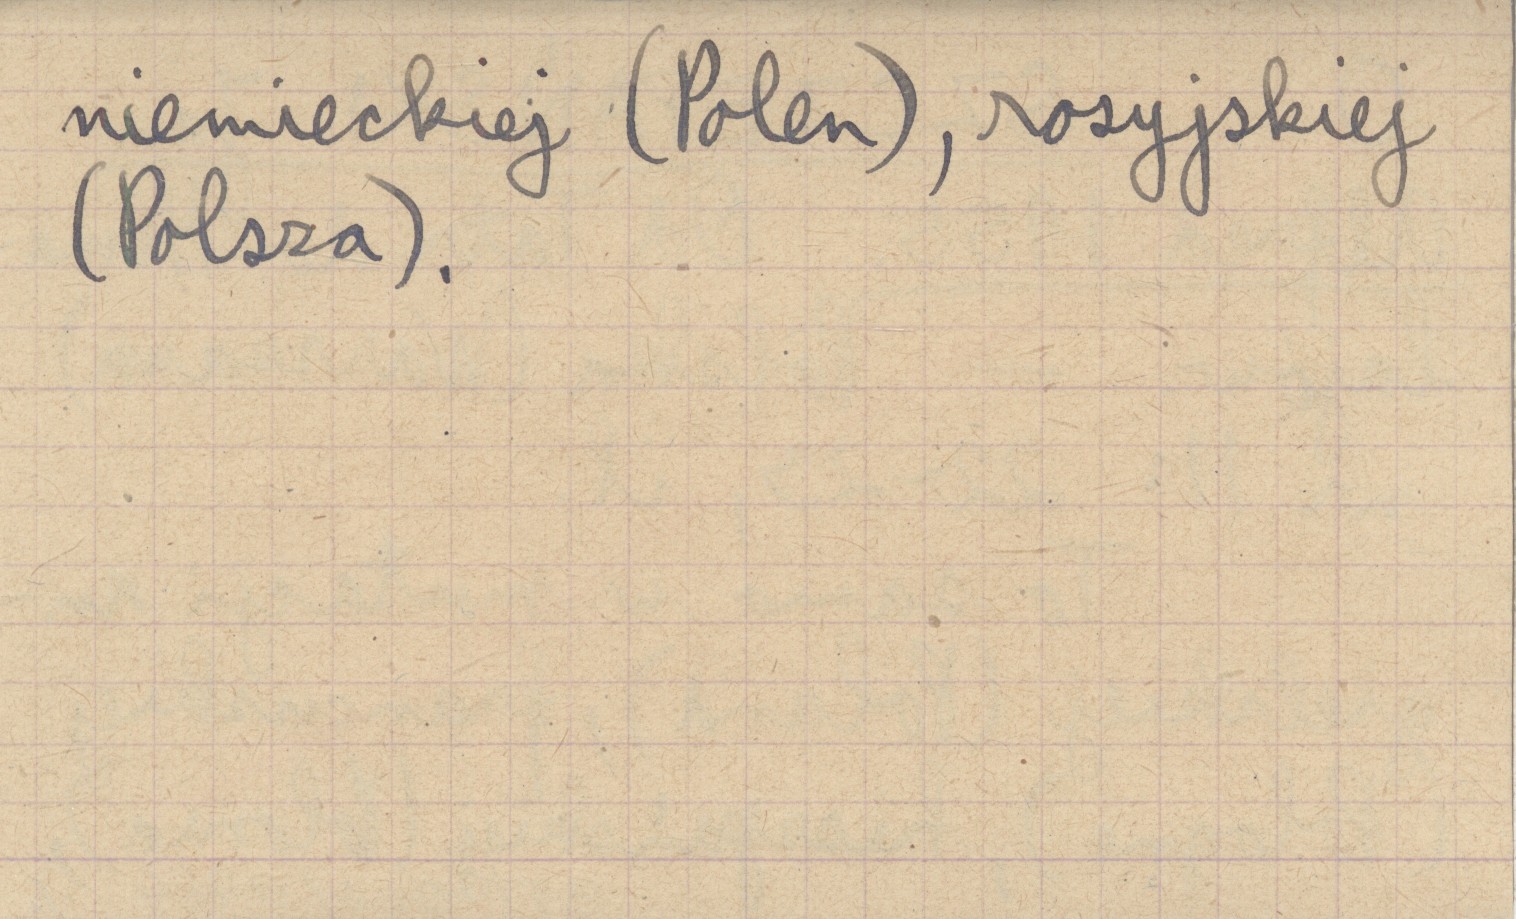 niemieckiej (Polen), rosyjskiej
(Polsza).